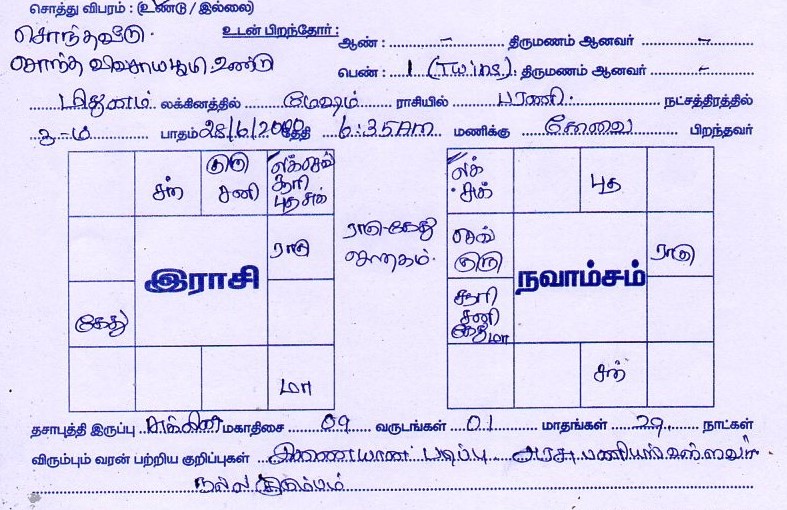 சொத்து விபரம் : (உண்டு / இல்லை)
சொந்தவீடு.
உடன் பிறந்தோர் : ஆண் : – திருமணம் ஆனவர் –
சொந்த விவசாயபூமி உண்டு
பெண் : 1 (Twins). திருமணம் ஆனவர் –
மிதுனம் லக்கினத்தில் மேஷம் ராசியில் பரணி. நட்சத்திரத்தில்
2-ம் பாதம் 28/6/2000 தேதி 6:35 Am மணிக்கு கோவை பிறந்தவர்
சந் குரு சனி லக் செவ் சூரி புத சுக்
ராகு
இராசி
கேது
மா
ராகு-கேது ஜாதகம்.
லக் சுக் புத
செவ் குரு ராகு
நவாம்சம்
சூரி சனி கேது மா
சந்
தசாபுத்தி இருப்பு சுக்கிர மகாதிசை 09 வருடங்கள் 01 மாதங்கள் 29 நாட்கள்
விரும்பும் வரன் பற்றிய குறிப்புகள் இணையான படிப்பு அரசு பணியில் உள்ளவர்
நல்ல குடும்பம்